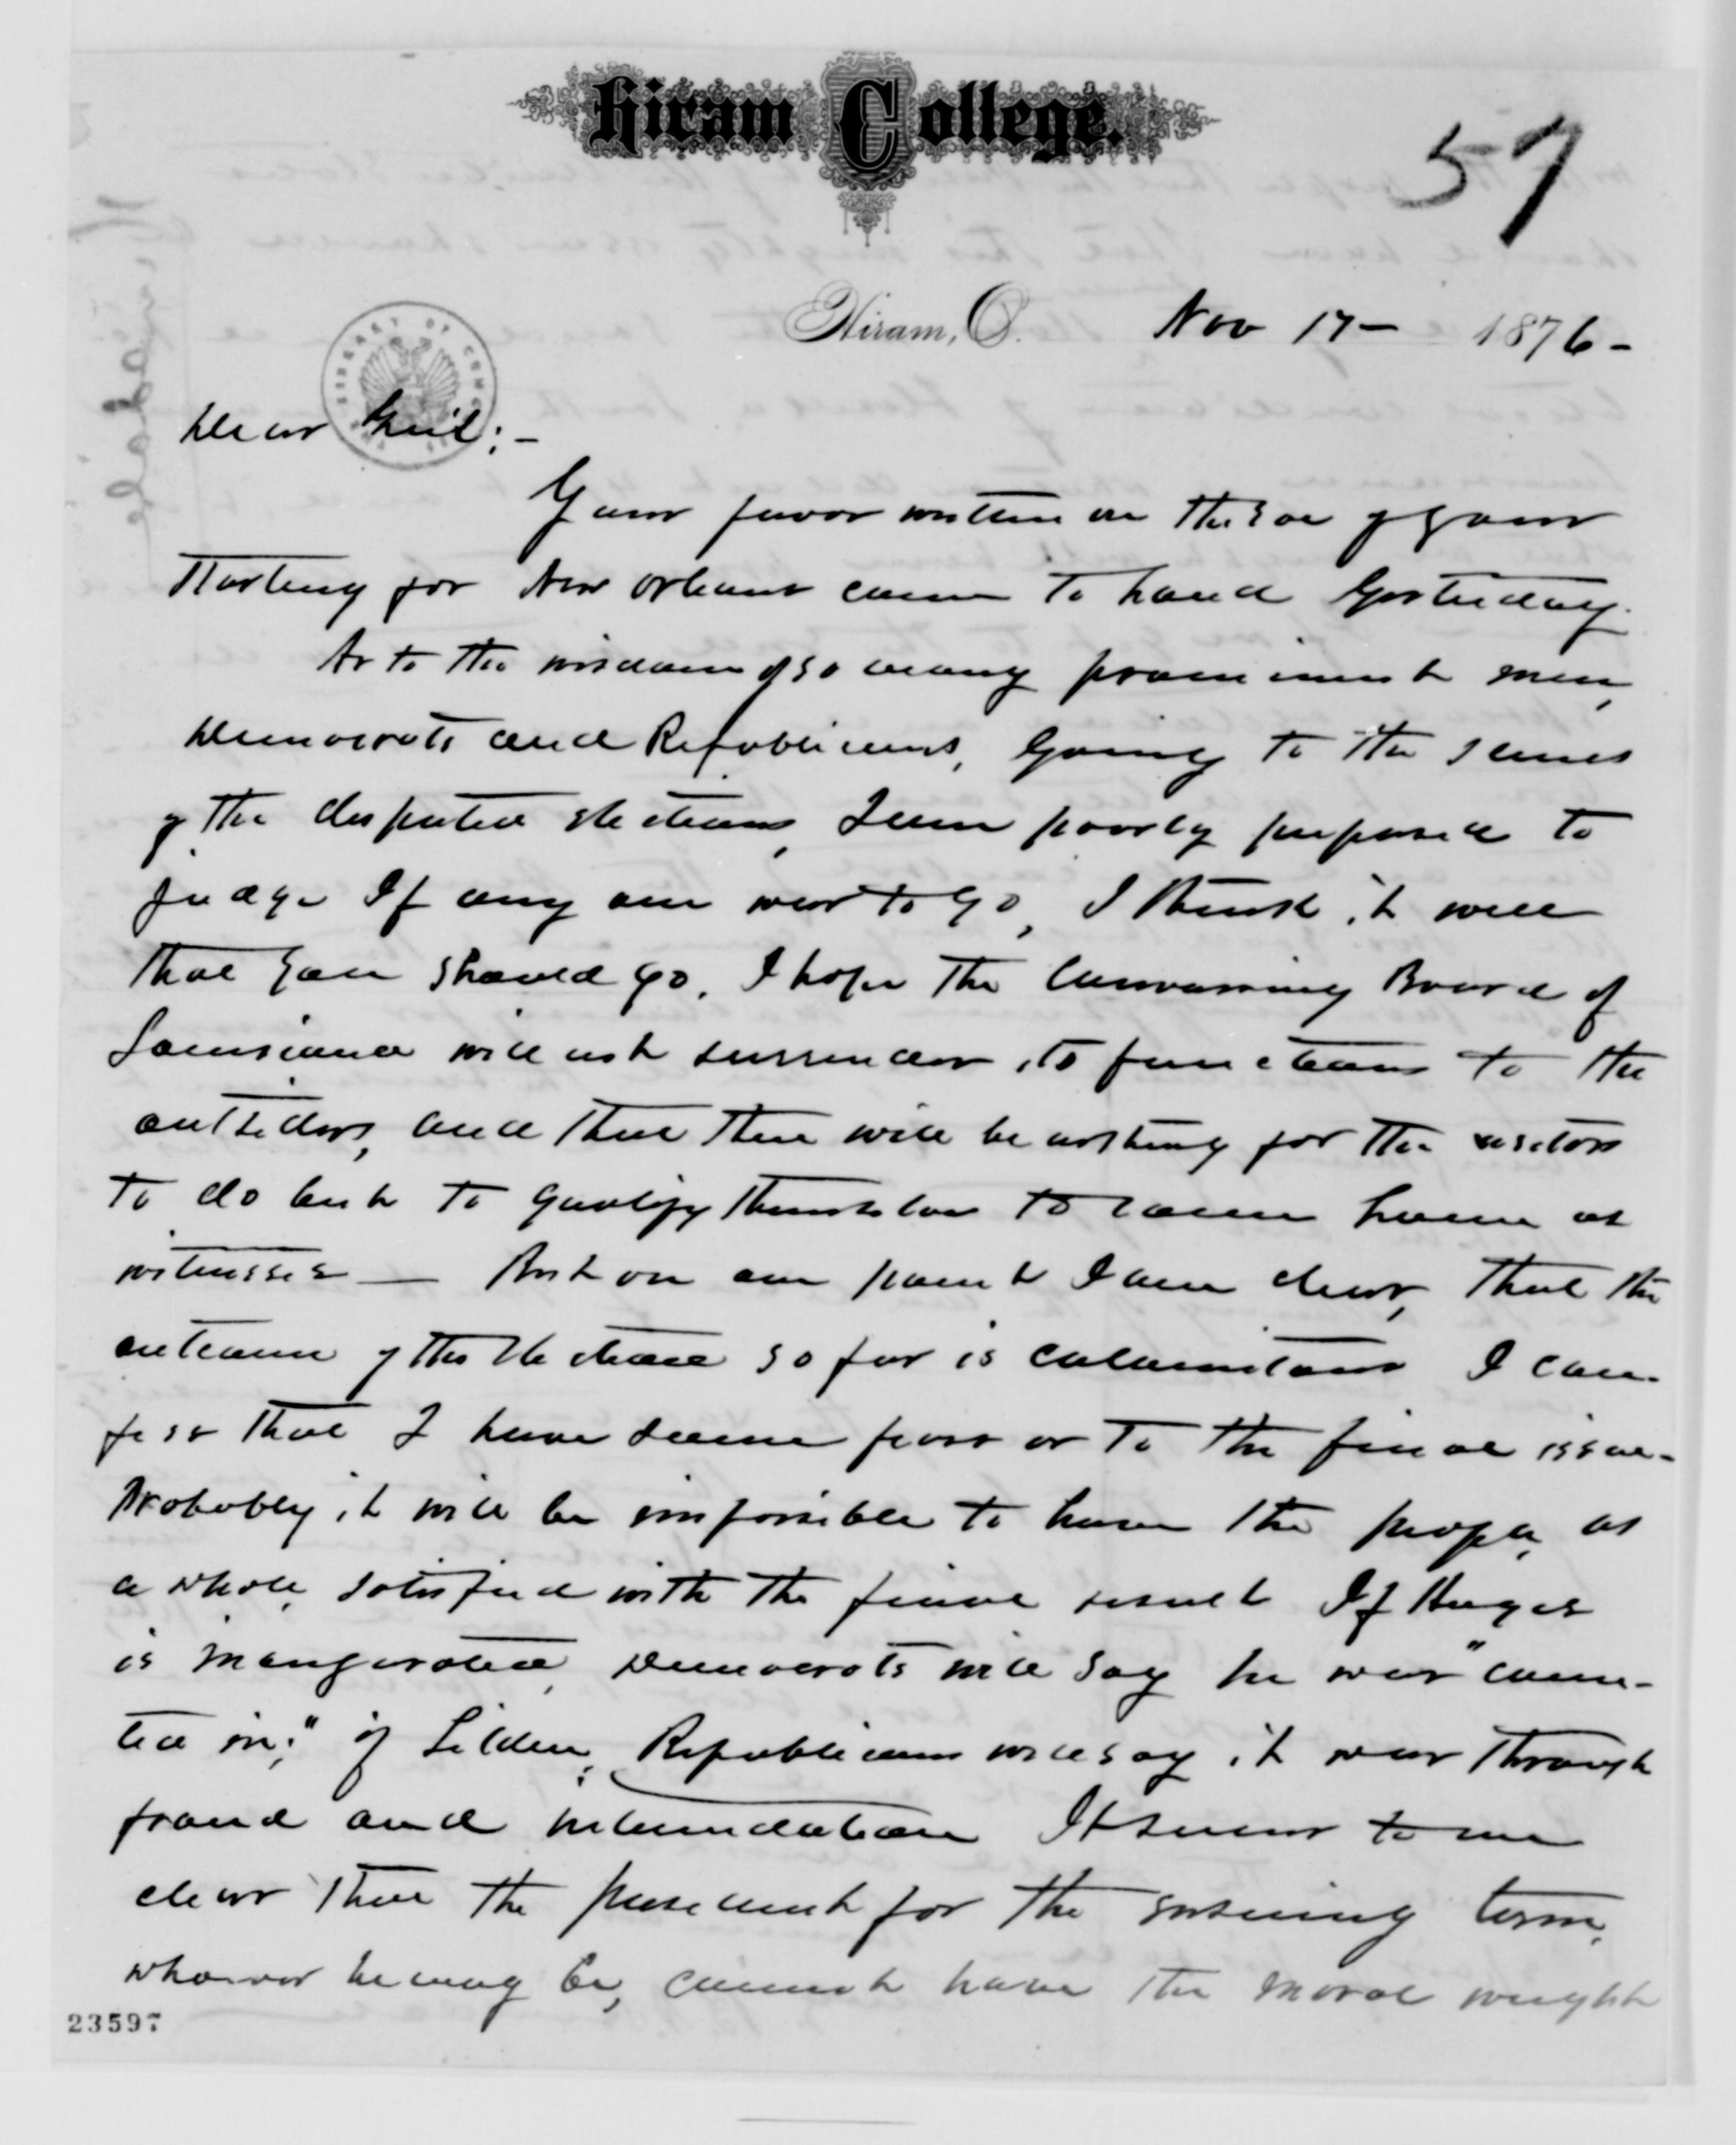 Hiram College.
57
Hiram, O. Nov 17- 1876-
LIBRARY OF CONG
Dear Genl:-
Your favor written on the eve of your
starting for New Orleans came to hand yesterday.
As to the wisdom of so many prominent men,
Democrats and Republicans, going to the scenes
of the disputed elections, I am poorly prepared to
judge If any one was to go, I think it well
that you should go. I hope the Canvassing Board of
Louisiana will not surrender its functions to the
outsiders, and that there will be nothing for the visitors
to do but to qualify themselves to come home as
witnesses — But on one point I am clear, that the
outcome of the election so far is calamitous I con-
fess that I have some fears as to the final issue-
Probably it will be impossible to have the people, as
a whole, satisfied with the final result If Hayes
is inaugurated, Democrats will say he was "coun-
ted in;" if Tilden, Republicans will say it was through
fraud and intimidation It seems to me
clear that the president for the ensuing term,
whoever he may be, cannot have the moral weight
23597